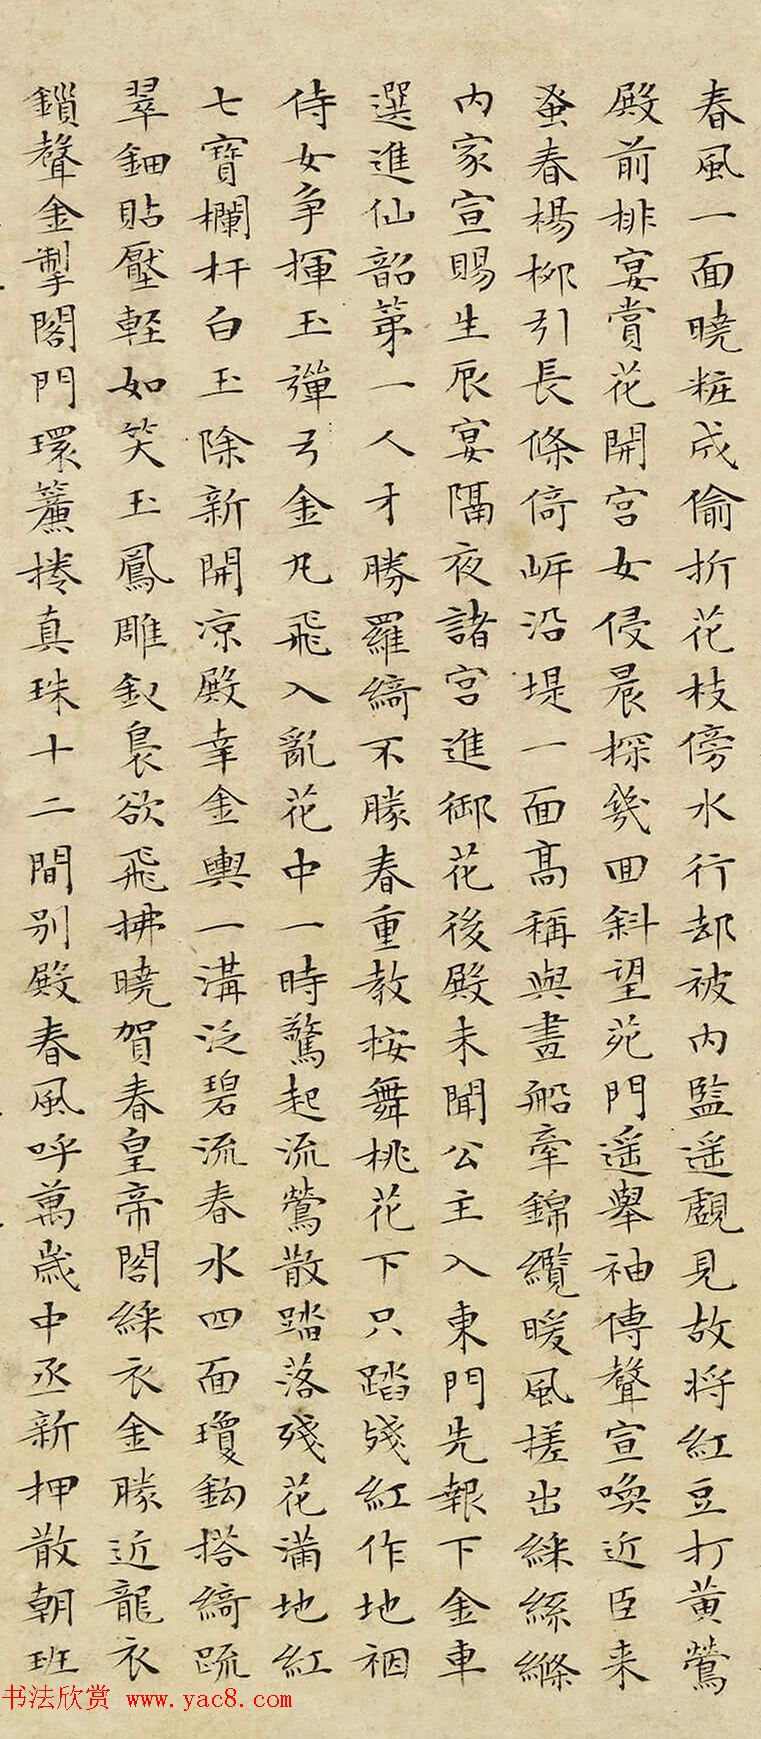 春風一面曉粧成偷折花枝傍水行却被内監遥覷見故將紅豆打黄鶯
殿前排宴賞花開宫女侵晨探幾回斜望苑門遥舉袖傳聲宣喚近臣来
蚤春楊柳引長條倚岍沿堤一面高稱與畫船牽錦纜暖風搓出綵絲縧
内家宣賜生辰宴隔夜諸宫進御花後殿未聞公主入東門先報下金車
選進仙韶第一人才勝羅綺不勝春重教按舞桃花下只踏殘紅作地裀
侍女争揮玉彈弓金丸飛入亂花中一時驚起流鶯散踏落殘花滿地紅
七寶欄杆白玉除新開凉殿幸金輿一溝泛碧流春水四面瓊鈎搭綺疏
翠鈿貼靨輕如笑玉鳳雕釵裊欲飛拂曉賀春皇帝閣綵衣金勝近龍衣
鎖聲金掣閣門環簾捲真珠十二間别殿春風呼萬歲中丞新押散朝班
书法欣赏 www.yac8.com